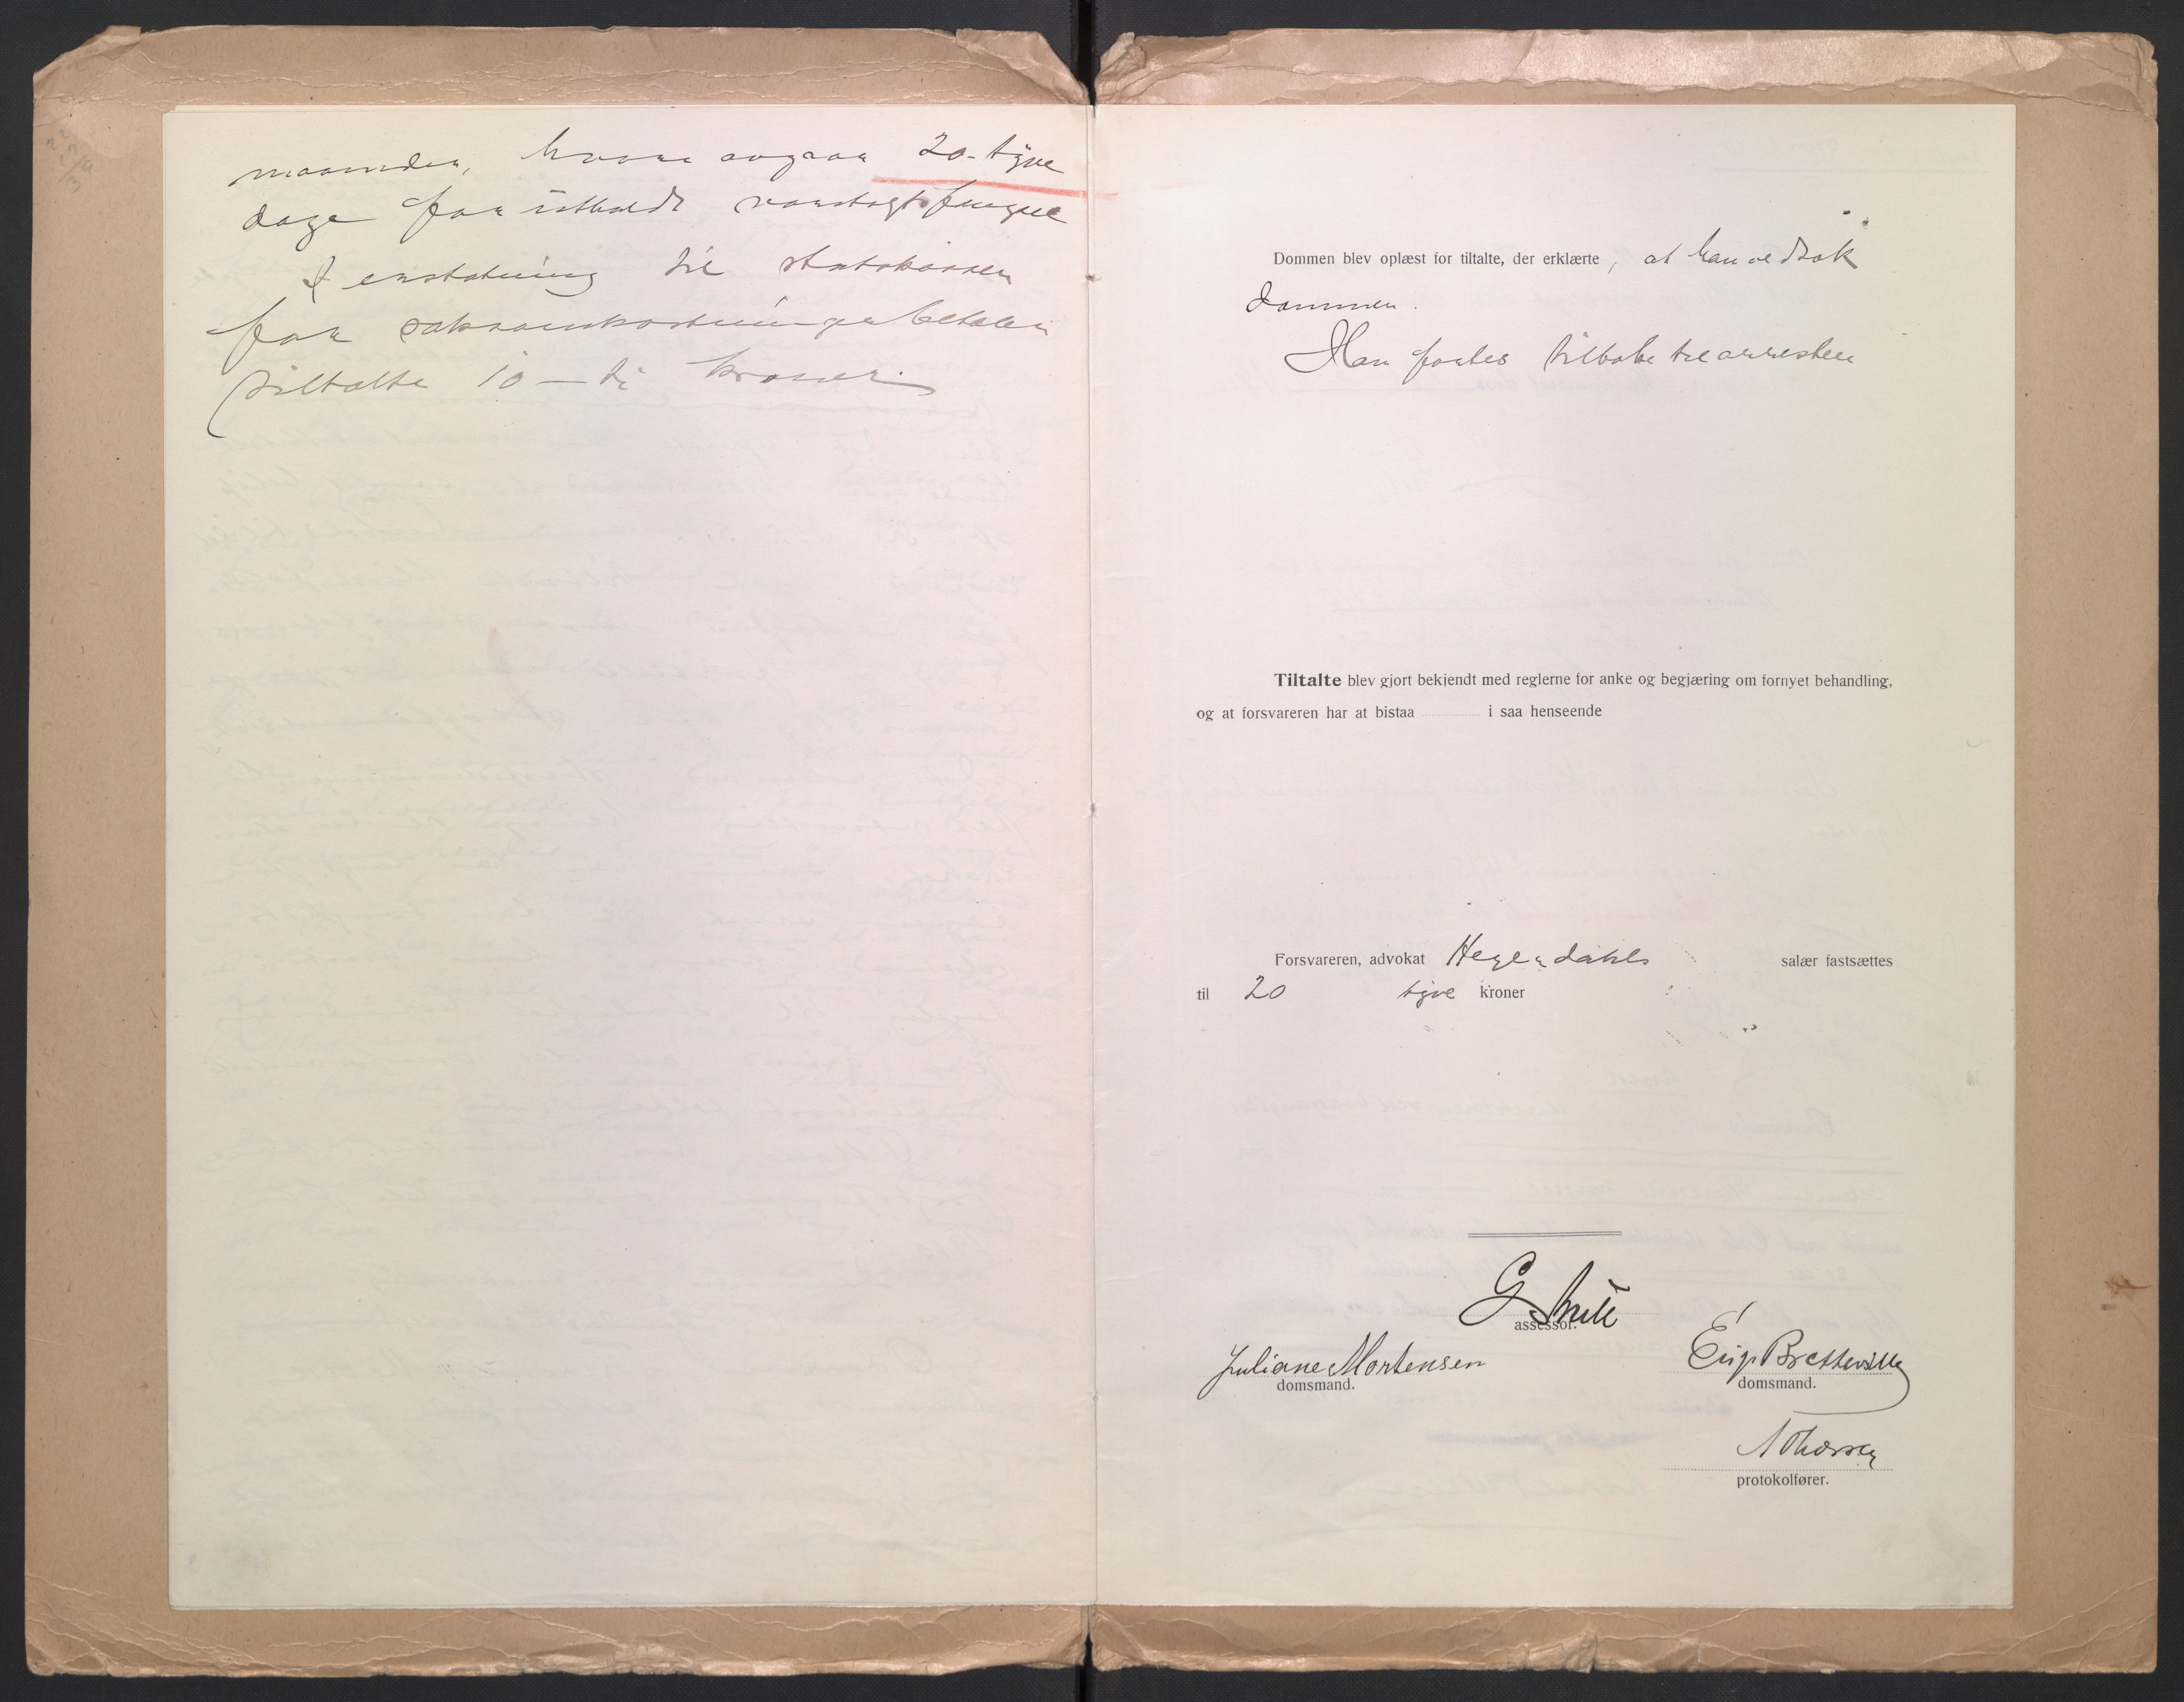 maaneder, hvorav avgaar 20 - tyve
dage for utholdt varetegtsfængsel
I erstatning til statskassen
for saksomkostninger betaler
tiltalte 10 — ti kroner.
Dommen blev oplæst for tiltalte, der erklærte, at han vedtok
dommen.
Han førtes tilbake til arresten
Tiltalte blev gjort bekjendt med reglerne for anke og begjæring om fornyet behandling,
og at forsvareren har at bistaa i saa henseende
Forsvareren, advokat Heyerdahls salær fastsættes
til 20 tyve kroner
G.
assessor.
Juliane Mortensen
domsmand.
Bretteville
domsmand.
protokolfører.